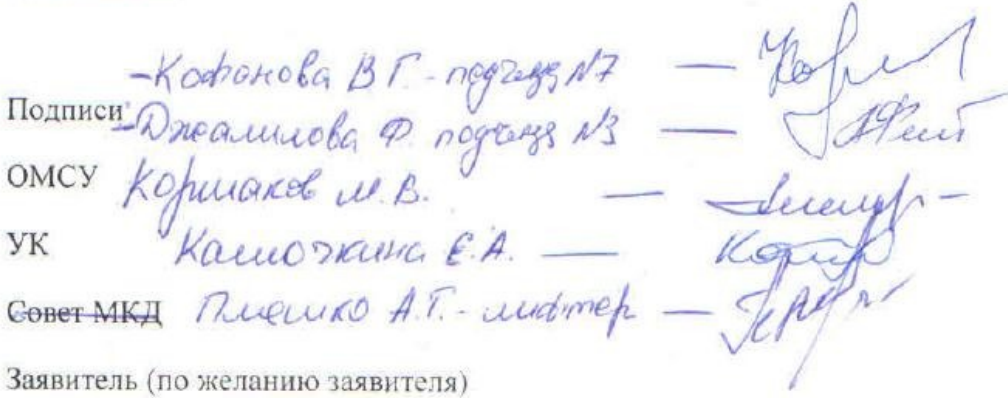 -Кофанова В Г. - подъезд №7 —
Подписи
-Джамилова Ф. подъезд №3 —
ОМСУ Коршаков М. В. —
УК Камочкина Е.А. —
Совет МКД А.Г. - лифтер —
Заявитель (по желанию заявителя)